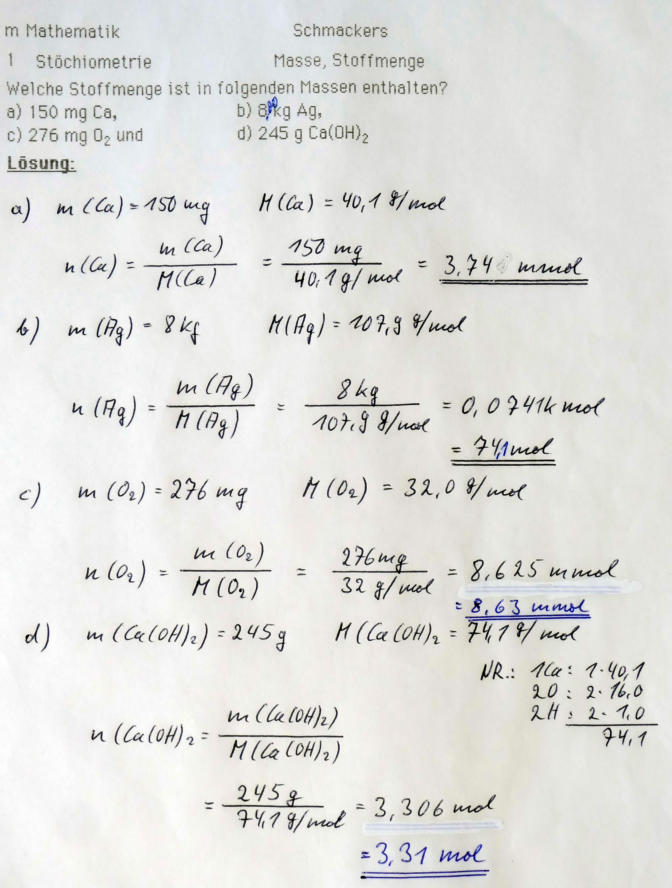 m Mathematik Schmackers
1 Stöchiometrie Masse, Stoffmenge
Welche Stoffmenge ist in folgenden Massen enthalten?
a) 150 mg Ca, b) 8,00 kg Ag,
c) 276 mg O₂ und d) 245 g Ca(OH)₂
Lösung:
a) m (Ca) = 150 mg M (Ca) = 40,1 g/mol
n (Ca) = m (Ca) / M (Ca) = 150 mg / 40,1 g/mol = 3,74 mmol
b) m (Ag) = 8 kg M (Ag) = 107,9 g/mol
n (Ag) = m (Ag) / M (Ag) = 8 kg / 107,9 g/mol = 0,0741 k mol
= 74,1 mol
c) m (O₂) = 276 mg M (O₂) = 32,0 g/mol
n (O₂) = m (O₂) / M (O₂) = 276 mg / 32 g/mol = 8,625 mmol
= 8,63 mmol
d) m (Ca(OH)₂) = 245 g M (Ca(OH)₂ = 74,1 g/mol
NR.: 1Ca : 1·40,1
2O : 2·16,0
2H : 2·1,0
74,1
n (Ca(OH)₂ = m (Ca(OH)₂) / M (Ca(OH)₂)
= 245 g / 74,1 g/mol = 3,306 mol
= 3,31 mol